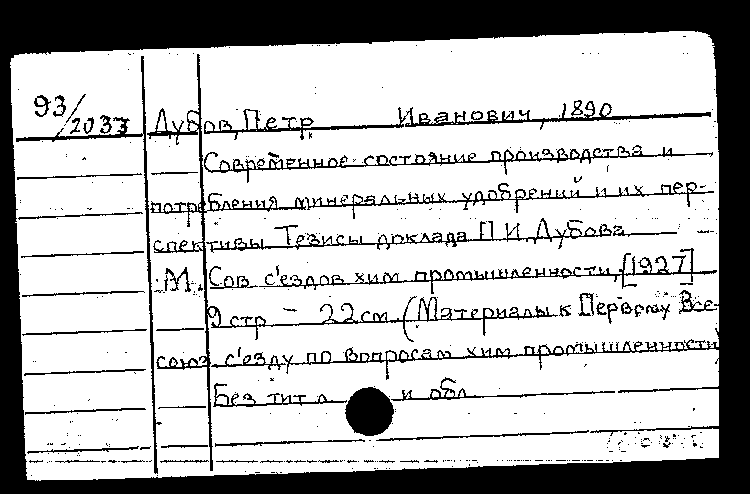 93/2033 Дубов, Петр Иванович, 1890
Современное состояние производства и
потребления минеральных удобрений и их пер-
спективы Тезисы доклада П И Дубова
М. Сов с'ездов хим промышленности, [1927]
9 стр – 22 см (Материалы к Первому Все-
союз с'езду по вопросам хим промышленности
Без тит л и обл.